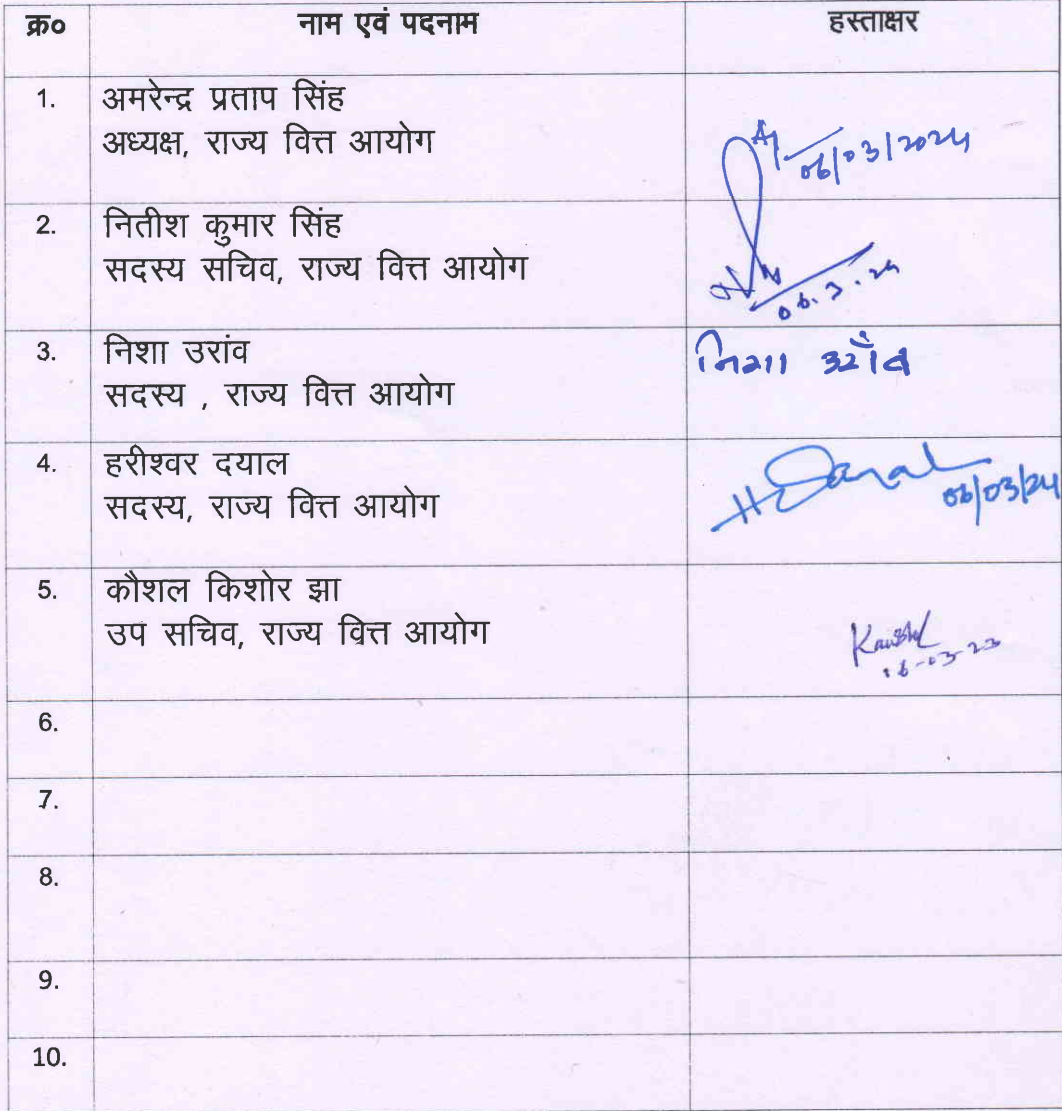 क्र० नाम एवं पदनाम हस्ताक्षर
1. अमरेन्द्र प्रताप सिंह
अध्यक्ष, राज्य वित्त आयोग
06/03/2024
2. नितीश कुमार सिंह
सदस्य सचिव, राज्य वित्त आयोग
06.3.24
3. निशा उरांव
सदस्य , राज्य वित्त आयोग
निशा उराँव
4. हरीश्वर दयाल
सदस्य, राज्य वित्त आयोग
H Dayal
06/03/24
5. कौशल किशोर झा
उप सचिव, राज्य वित्त आयोग
Kaushal
06-03-23
6.
7.
8.
9.
10.